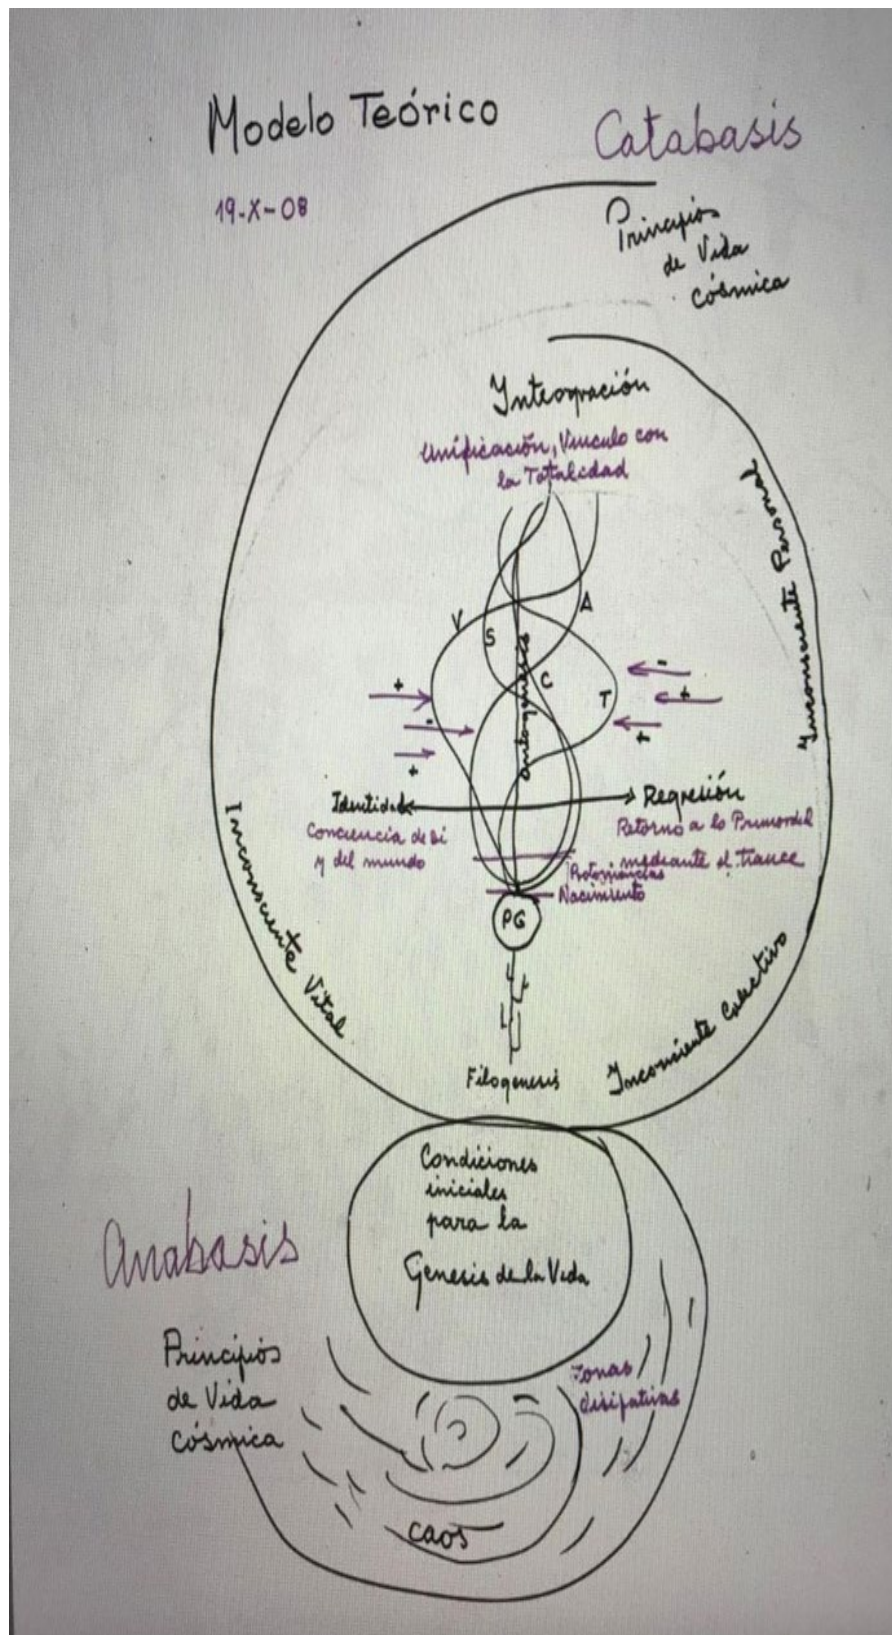 Modelo Teórico
Catabasis
19-X-08
Principios
de Vida
cósmica
Integración
Unificación, Vinculo con
la Totalidad
Inconsciente Personal
V
S
A
C
T
Ontogenesis
+
-
+
-
+
+
Identidad
Conciencia de Si
y del mundo
Regresión
Retorno a lo Primordial
mediante el trance
Protovivencias
Nacimiento
PG
Inconsciente Vital
Inconsciente Colectivo
Filogenesis
Condiciones
iniciales
para la
Genesis de la Vida
Anabasis
Principios
de Vida
Cósmica
Zonas
disipativas
caos